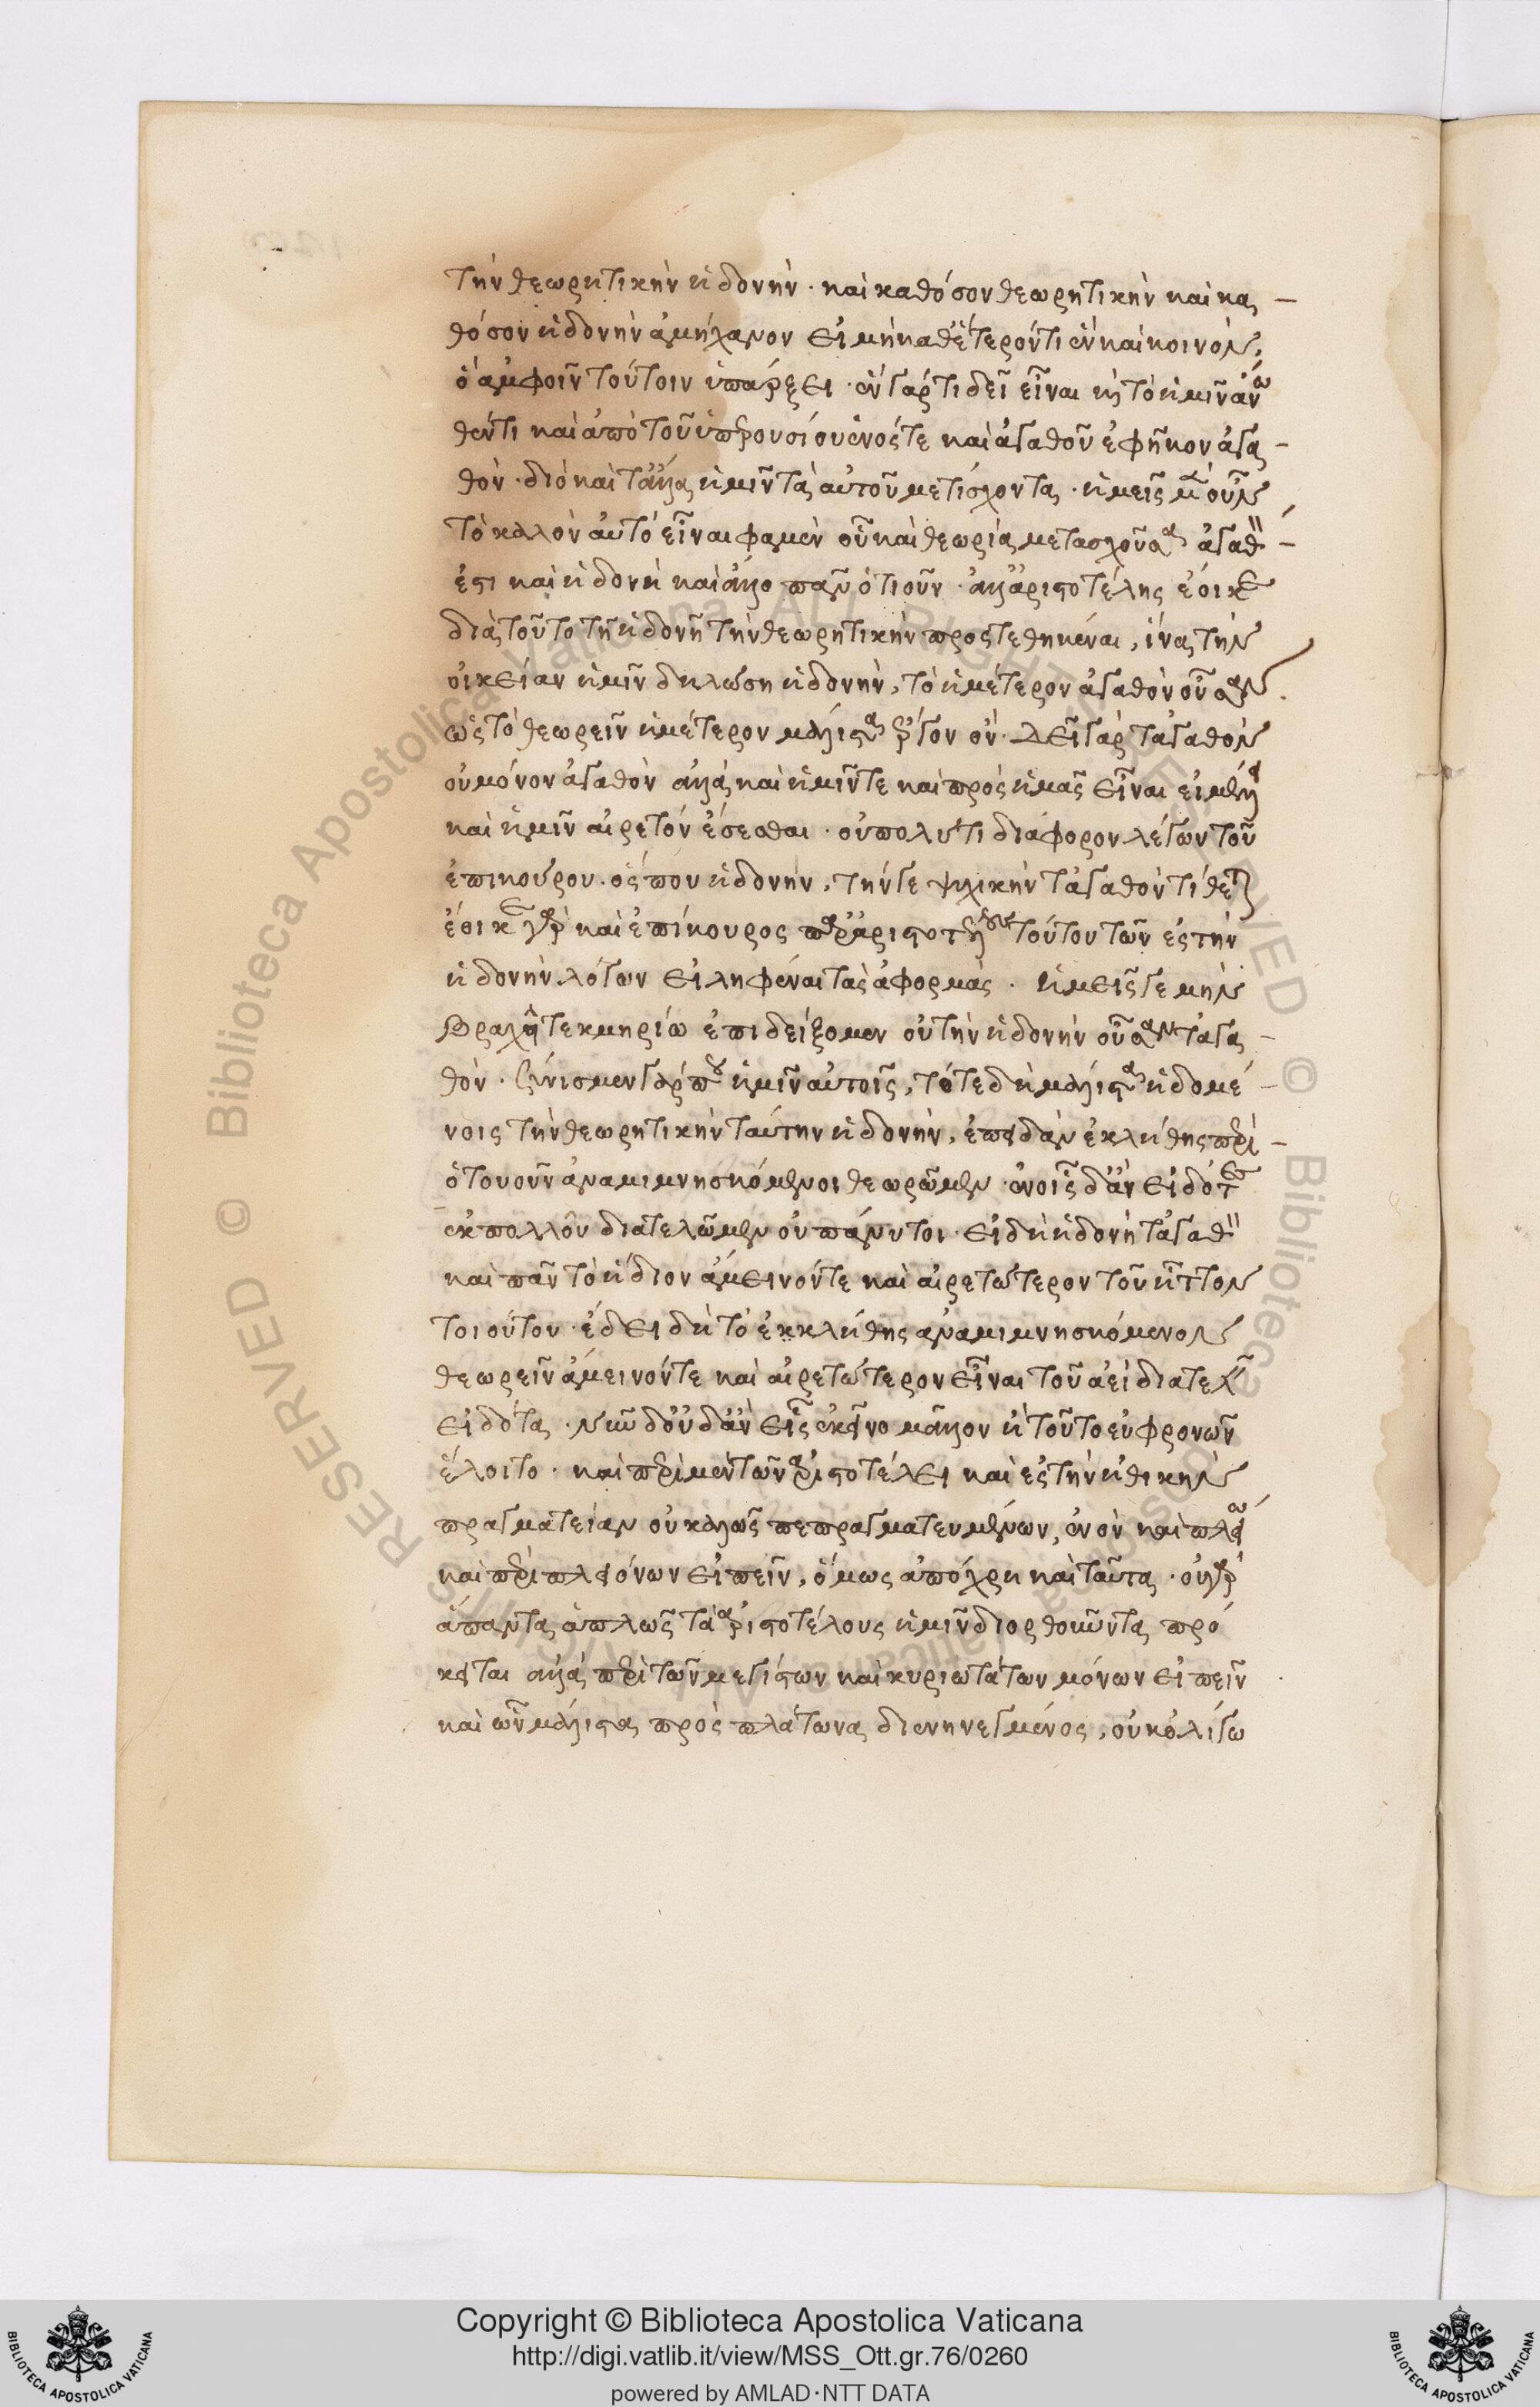 τὴν θεωρητικὴν ἡδονήν · καὶ καθόσον θεωρητικὴν καὶ κα-
θόσον ἡδονὴν ἀμήχανον εἰ μὴ καθ' ἕτερόν τι ἓν καὶ κοινὸν,
ὃ ἀμφοῖν τούτοιν ὑπάρξει · ἓν γάρ τι δεῖ εἶναι καὶ τὸ ἡμῖν
καὶ ἀπὸ τοῦ ὑπερουσίου ἑνός τε καὶ ἀγαθοῦ ἐφῆκον ἀγα-
θόν · διὸ καὶ τἄλλα ἡμῖν τὰ αὐτοῦ μετίσχοντα · ἡμεῖς μὲν οὖν
τὸ καλὸν αὐτὸ εἶναί φαμεν οὗ καὶ θεωρία μετασχοῦσα ἀγαθ -
ἐστι καὶ ἡδονὴ καὶ ἄλλο πᾶν ὁτιοῦν · ἀλλ' ἀριστοτέλης ἔοικε
διὰ τοῦτο τῇ ἡδονῇ τὴν θεωρητικὴν προςτεθηκέναι, ἵνα τὴν
οἰκείαν ἡμῖν δηλώση ἡδονήν, τὸ ἡμέτερον ἀγαθὸν οὖσαν
ὡς τὸ θεωρεῖν ἡμέτερον μάλιστα ἔργον ὄν · δεῖ γὰρ τἀγαθὸν
οὐ μόνον ἀγαθὸν ἀλλὰ καὶ ἡμῖν τε καὶ πρὸς ἡμᾶς εἶναι εἰ μέλλει
καὶ ἡμῖν αἱρετὸν ἔσεσθαι · οὐ πολύ τι διάφορον λέγων τοῦ
ἐπικούρου · ὅς που ἡδονήν, τήν γε ψυχικὴν τἀγαθὸν τίθεται
ἔοικε γὰρ καὶ ἐπίκουρος παρ' ἀριστοτέλους τούτου τῶν ἐς τὴν
ἡδονὴν λόγων εἰληφέναι τὰς ἀφορμάς · ἡμεῖς γε μὴν
βραχεῖ τεκμηρίω ἐπιδείξομεν οὐ τὴν ἡδονὴν οὖσαν τἀγα-
θόν · σύνισμεν γάρ που ἡμῖν αὐτοῖς, τότε δὴ μάλιστα ἡδομέ-
νοις τὴν θεωρητικὴν ταύτην ἡδονήν, ἐπειδὰν ἐκ λήθης περὶ -
ὅτου οὖν ἀναμιμνησκόμενοι θεωρῶμεν · ἐν οἷς δ' ἂν εἰδότες
ἐκ πολλοῦ διατελῶμεν οὐ πάνυ τοι · εἰ δὴ ἡδονὴ τἀγαθ
καὶ πᾶν τὸ ἥδιον ἄμεινόν τε καὶ αἱρετώτερον τοῦ ἧττον
τοιούτου · ἔδει δὴ τὸ ἐκ λήθης ἀναμιμνησκόμενον
θεωρεῖν ἄμεινόν τε καὶ αἱρετώτερον εἶναι τοῦ ἀεὶ διατελεῖν
εἰδότα · νῦν δ' οὐδ' ἂν εἷς ἐκεῖνο μᾶλλον ἢ τοῦτο εὖ φρονῶν
ἕλοιτο · καὶ περὶ μὲν τῶν ἀριστοτέλει καὶ ἐς τὴν ἠθικὴν
πραγματείαν οὐ καλῶς πεπραγματευμένων, ἐνὸν καὶ πλείω
καὶ περὶ πλειόνων εἰπεῖν, ὅμως ἀπόχρη καὶ ταῦτα · οὐ γὰρ
ἅπαντα ἁπλῶς τὰ ἀριστοτέλους ἡμῖν διορθοῦντα πρό
κειται ἀλλὰ περὶ τῶν μεγίστων καὶ κυριωτάτων μόνων εἰπεῖν
καὶ ὧν μάλιστα πρὸς πλάτωνα διενηνεγμένος, οὐκ ὀλίγω
Copyright © Biblioteca Apostolica Vaticana
http://digi.vatlib.it/view/MSS_Ott.gr.76/0260
powered by AMLAD·NTT DATA
BIBLIOTECA APOSTOLICA VATICANA
BIBLIOTECA APOSTOLICA VATICANA